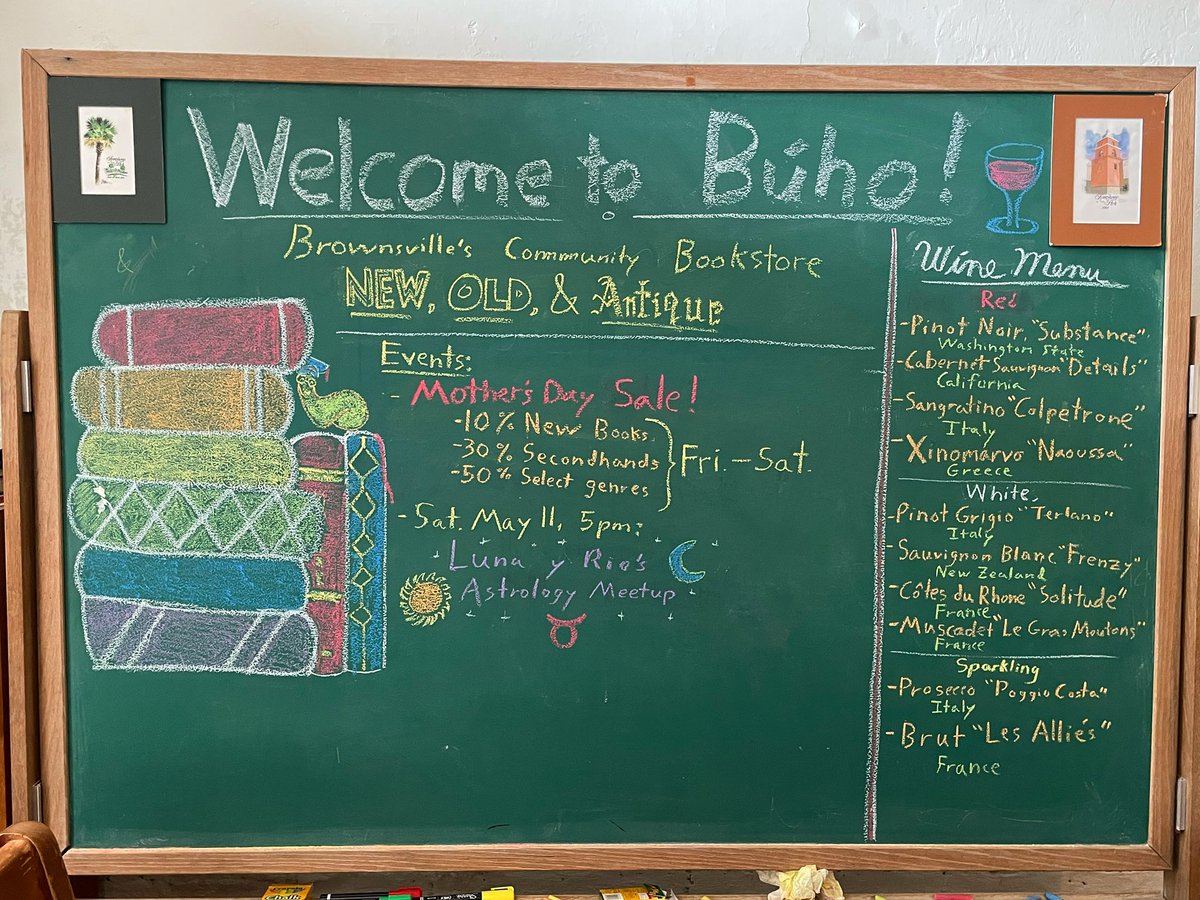 Welcome to Búho!
Brownsville's Community Bookstore
NEW, OLD, & Antique
Events:
- Mother's Day Sale!
-10% New Books
-30% Secondhands
-50% Select genres
Fri.-Sat.
-Sat. May 11, 5pm:
Luna y Rio's
Astrology Meetup
Wine Menu
Red
-Pinot Noir, "Substance"
Washington State
-Cabernet Sauvignon "Details"
California
-Sangratino "Colpetrone"
Italy
-Xinomarvo "Naoussa"
Greece
White
-Pinot Grigio "Terlano"
Italy
-Sauvignon Blanc "Frenzy"
New Zealand
-Côtes du Rhone "Solitude"
France
-Muscadet "Le Gras Moutons"
France
Sparkling
-Prosecco "Poggio Costa"
Italy
-Brut "Les Alliés"
France